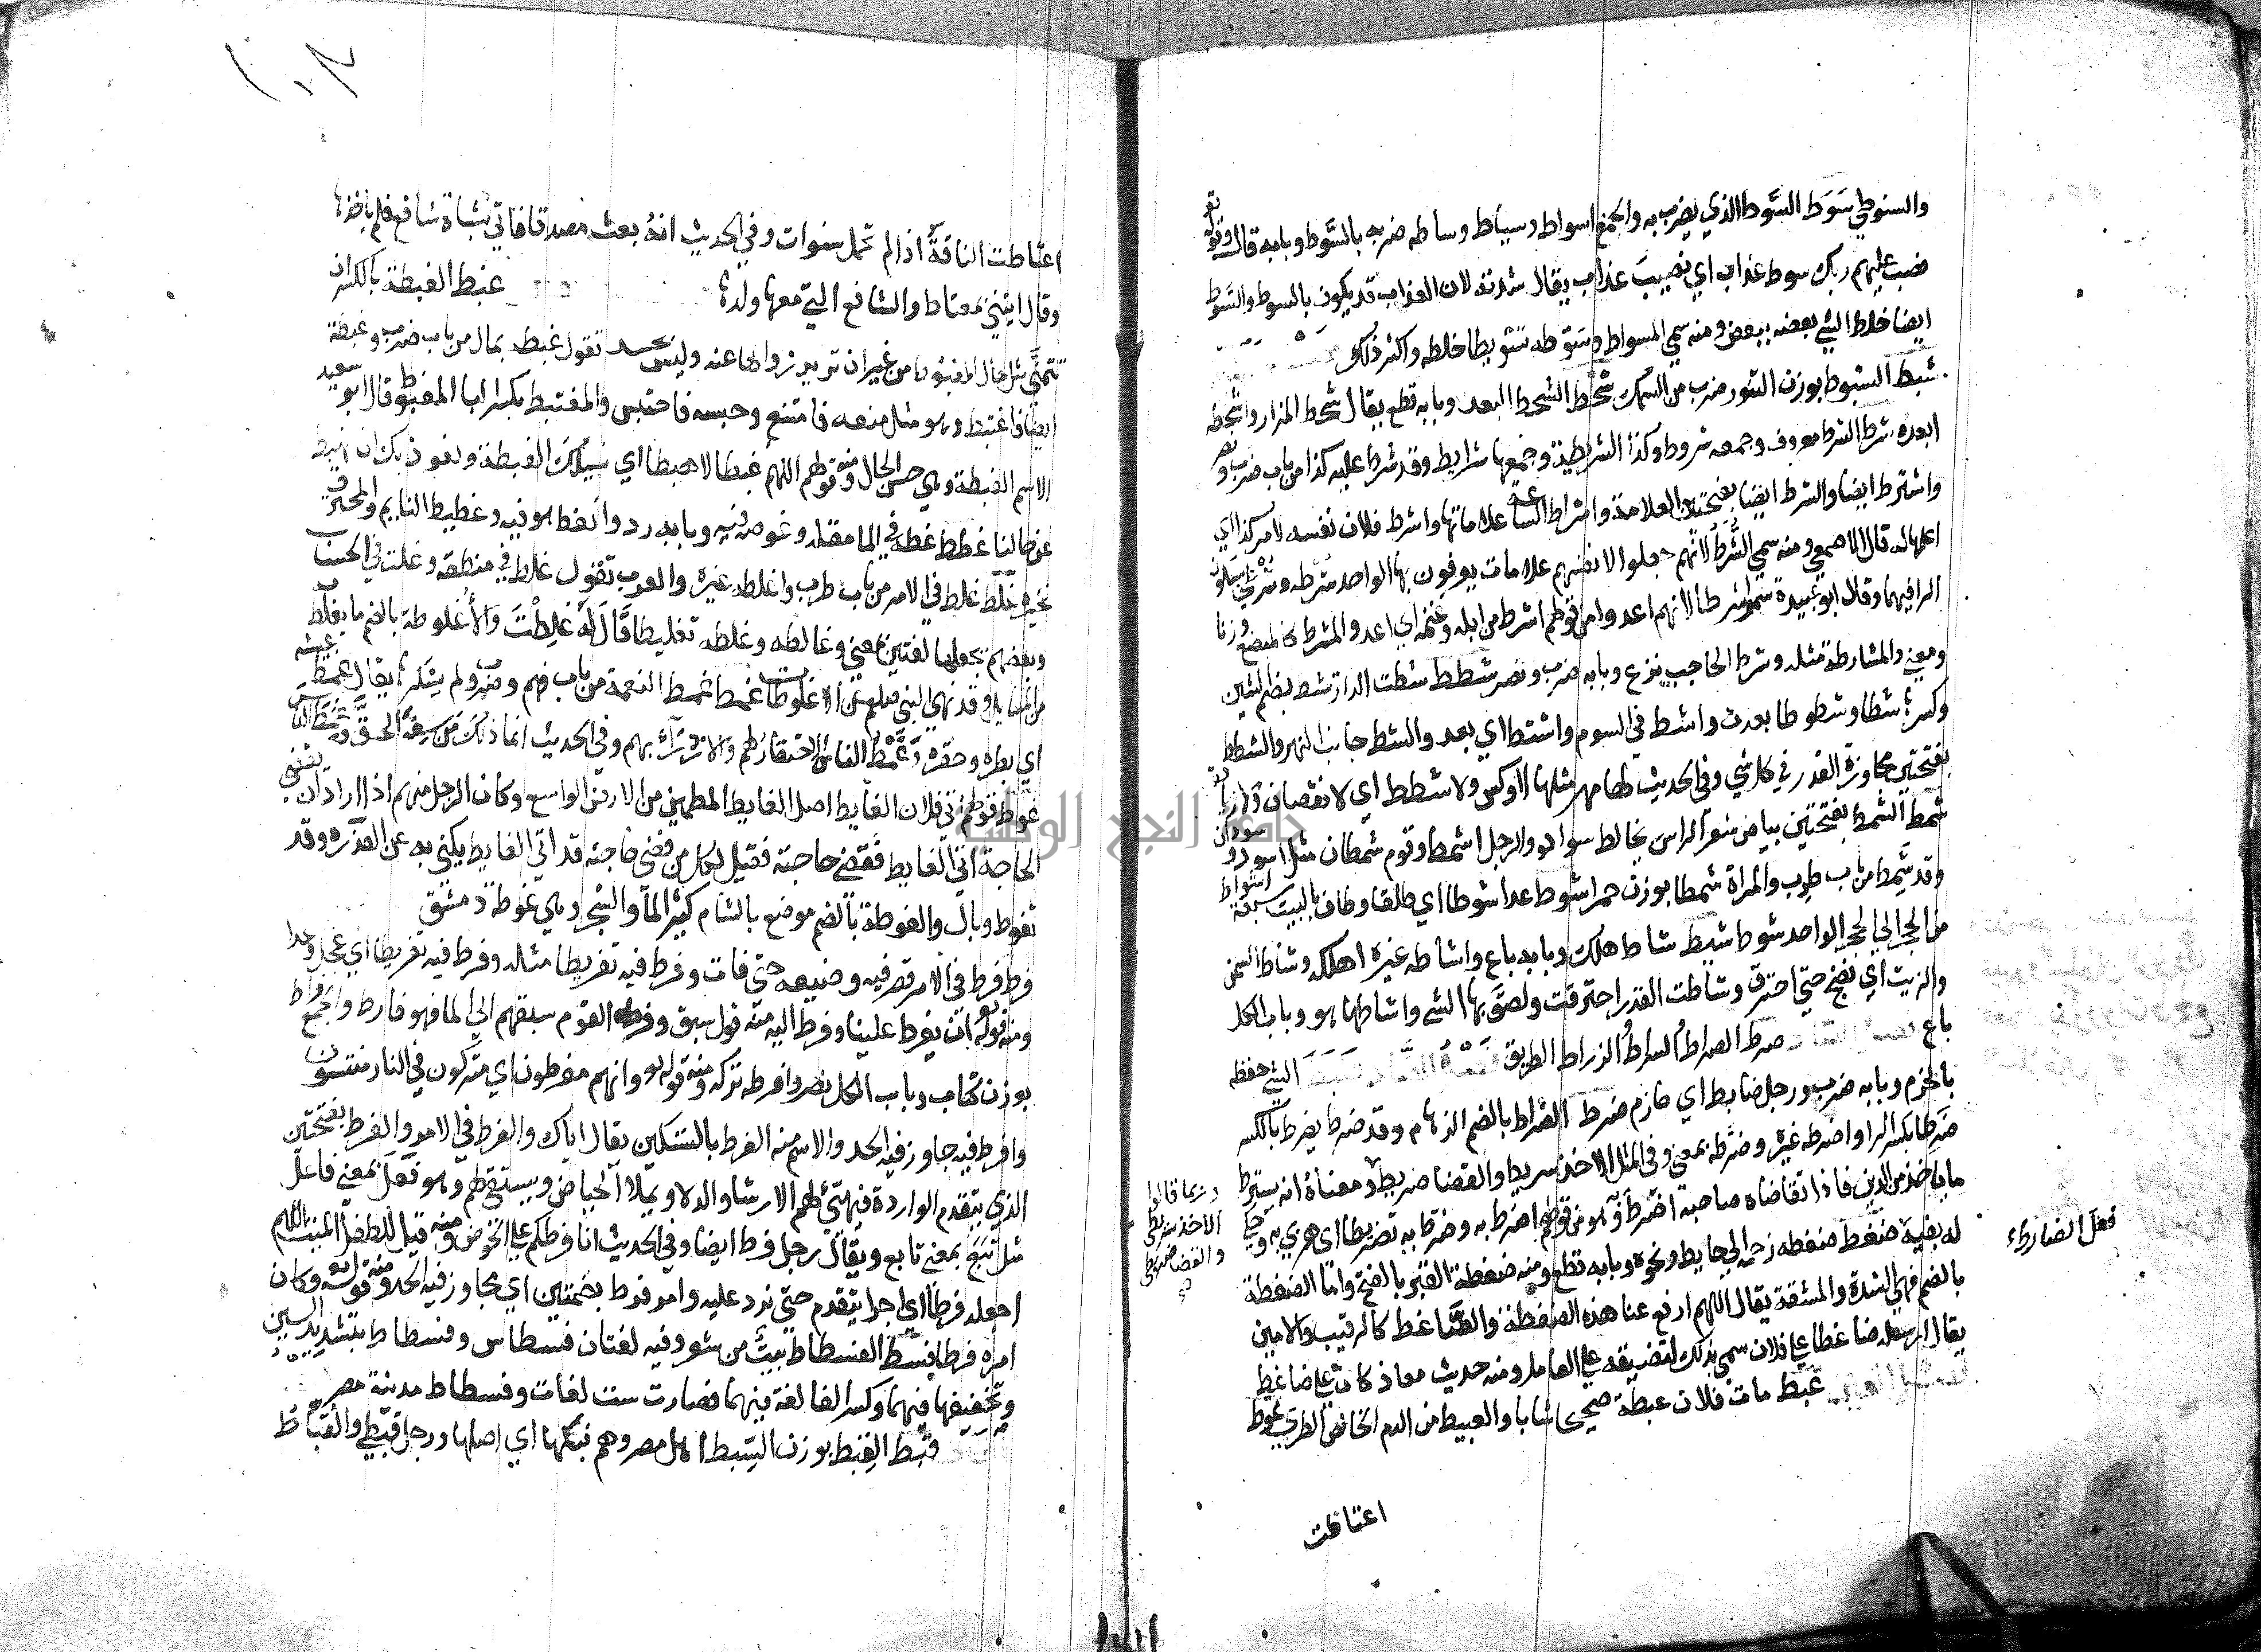 والسنوطي سَوَط السَّوط الذي يضرب به والجمع اسواط وسياط وساطه ضربه بالسَّوط وبابه قال وقوله تع
فصب عليهم ربك سوط عذاب اي نصيبَ عذاب يقال شدته لان العذاب قد يكون بالسوط والسَّوط
ايضا خلط الشي بعضه ببعض ومنه سمي المسواط وسَوّطه تسْويطا خلطه واكثر ذلك
شبط الشبوط بوزن التنور ضرب من السمك شحط الشحط البعد وبابه قطع يقال شحط المزار واشحطه
ابعده شرط الشرط معروف وجمعه شروط وكذا الشريطية وجمعها شرايط وقد شرط عليه كذا من باب ضرب ونصر
واشترط ايضا والشرط ايضا بفتحتين العلامة واشراط الساعة علاماتها واشرط فلان نفسه لامر كذا اي
اعلمها له قال الاصمعي ومنه سمي الشُّرَط لانهم جعلوا لانفسهم علامات يعرفون بها الواحد شرطه وشرطي بسكون
الرا فيهما وقال ابو عبيدة سُمّوا شرطا لانهم اعدوا من قولهم اشرط من ابله وغنمه اي اعد والمشرط كالمبضع وزنا
ومعنى والمشارطة مثله وشرط الحاجب بزغ وبابه ضرب ونصر شطط شطت الدار تشط بضم الشين
وكسرها شطا وشطوطا بعدت واشط في السوم واشتط اي بعد والشط جانب النهر والشطط
بفتحتين مجاوزة القدر في كل شي وفي الحديث لها مهر مثلها لا وكس ولا شطط اي لا نقصان ولا زيادة
شمط الشمط بفتحتين بياض شعر الراس يخالط سواده والرجل اشمط وقوم شمطان مثل اسود وسودان
وقد شَمِط من باب طرب والمراة شمطا بوزن حمرا شوط عدا شوطا اي طلقا وطاف بالبيت سبعة اشواط
من الحجر الي الحجر الواحد شوط شيط شاط هلك وبابه باع واشاطه غيره اهلكه وشاط السمن
والزيت اي نضج حتي احترق وشاطت القدر احترقت ولصق بها الشي واشاطها هو وباب الكل
باع صرط الصراط والسراط والزراط الطريق الشي حفظه
بالحزم وبابه ضرب ورجل ضابط اي حازم ضرط الضراط بالضم الردام وقد ضرط يضرط بالكسر
ضَرِطا بكسر الرا واضرطه غيره وضرّطه بمعنى وفي المثل الاخذ سريط والقضا ضريط ومعناه انه يسترط
ما ياخذ من الدين فاذا تقاضاه صاحبه اضرط به وهو من قولهم اضرط به وضرّط به تضريطا اي هزي به وحكي
له بفيه ضغط ضغطه زحمه الي حايط ونحوه وبابه قطع ومنه ضغطة القبر بالفتح واما الضغطة
بالضم فهي الشدة والمشقة يقال اللهم ارفع عنا هذه الضغطة والضَّاغط كالرقيب والامين
يقال ارسله ضاغطا علي فلان سمي بذلك لتضييقه علي العامل ومنه حديث معاذ كان علي ضاغط
عبط مات فلان عبطة صحيحا شابا والعبيط من الدم الخالص الطري عوط
فعل الضارطاء
وربما قالوا
الاخذ سريطي
والقضا ضريطي
اعتاطت
اعتاطت الناقةُ اذا لم تحمل سنوات وفي الحديث انهُ بعث مصدقا فاتي بشاة شافع فلم ياخذها
وقال ايتني بمعتاط والشافع التي معها ولدها غبط الغبطة بالكسر ان
تتمنَّى مثل حال المغبوط من غير ان تريد زوالها عنه وليس بحسد تقول غبطه بما نال من باب ضرب وغبطة
ايضا فاغتبط وهو مثل منعه فامتنع وحبسه فاحتبس والمغتبط بكسر البا المغبوط قال ابو سعيد
الاسم الغبطة وهي حسن الحال ومنه قولهم اللهم غبطا لا هبطا اي نسئلك الغبطة ونعوذ بك ان نهبط
عن حالنا غطط غطه في الما مقله وغوصه فيه وبابه رد وانغط هو فيه وغطيط النايم والمخنوق
نخيره غلط غلط في الامر من باب طرب واغلطه غيره والعرب تقول غلط في منطقه وغلت في الحساب
وبعضهم يجعلها لغتين بمعنى وغالطه وغلّطه تغليطا قال له غلطتَ والأُغلوطة بالضم ما يغلط به
من المسايل وقد نهى النبي صلعم عن الاغلوطات غمط غمط النعمة من باب فهم وضرب ولم يشكرها يقال غمط عيشه
اي بطره وحقره وغَمْطُ الناس الاحتقار لهم والازراءُ بهم وفي الحديث انما ذلك من سفه الحق وغمط الناس
غوط قولهم اتي فلان الغايط اصل الغايط المطمين من الارض الواسع وكان الرجل منهم اذا اراد ان يقضي
الحاجة اتي الغايط فقضى حاجته فقيل لكل من قضى حاجته قد اتي الغايط يكني به عن العذره وقد
تغوط وبال والغوطة بالضم موضع بالشام كثير الما والشجر وهي غوطة دمشق
فرط فرط في الامر قصر فيه وضيعه حتى فات وفرّط فيه تفريطا مثله وفرط فيه تفريطا اي عجل وعدا
ومنه قوله تع ان يفرط علينا وفرط اليه منه قول سبق وفرط القوم سبقهم الي الما فهو فارط والجمع فراط
بوزن كتاب وباب الكل نصر وافرطه تركه ومنه قوله تع وانهم مفرطون اي متركون في النار منسيون
وافرط فيه جاوز فيه الحد والاسم منه الفرط بالتسكين يقال اياك والفرط في الامر والفرط بفتحتين
الذي يتقدم الواردة فيهيّئ لهم الارشا والدلا ويملا الحياض ويستقي لهم وهو فَعَل بمعنى فاعل
مثل تَبَع بمعنى تابع ويقال رجل فرط ايضا وفي الحديث انا فرطكم علي الحوض ومنه قيل للطفل الميت اللهم
اجعله فرطا اي اجرا يتقدم حتي نرد عليه وامر فرط بضمتين اي مجاوز فيه الحد ومنه قوله تع وكان
امره فرطا فسط الفسطاط بيتٌ من شعر وفيه لغتان فستاط وفسطاط بتشديد السين
وتخفيفها فيهما وكسر الفا لغة فيهما فصارت ست لغات وفسطاط مدينة مصر
قبط القبط بوزن السبط اهل مصر وهم بنكها اي اصلها ورجل قبطي والقبّاط